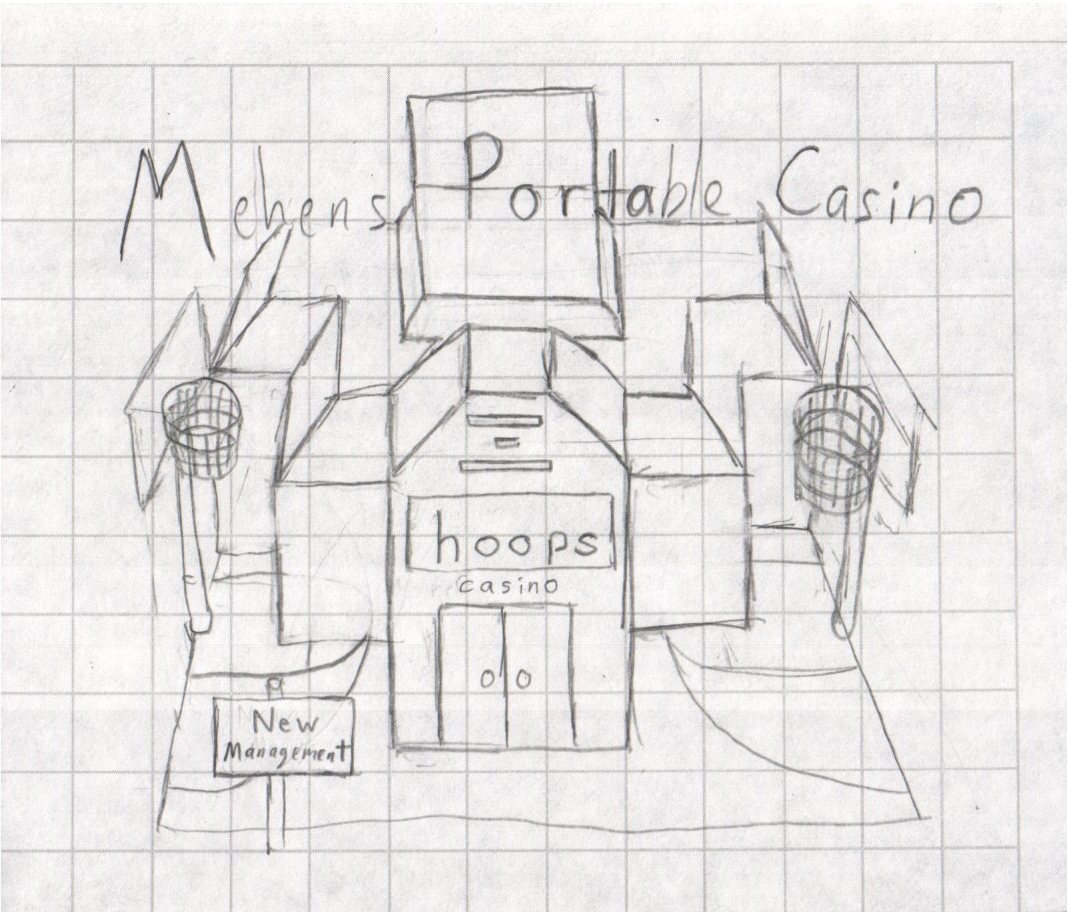 Mehens Portable Casino
hoops
casino
New
Management